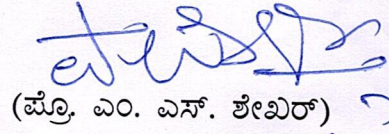 (ಪ್ರೊ. ಎಂ. ಎಸ್. ಶೇಖರ್)